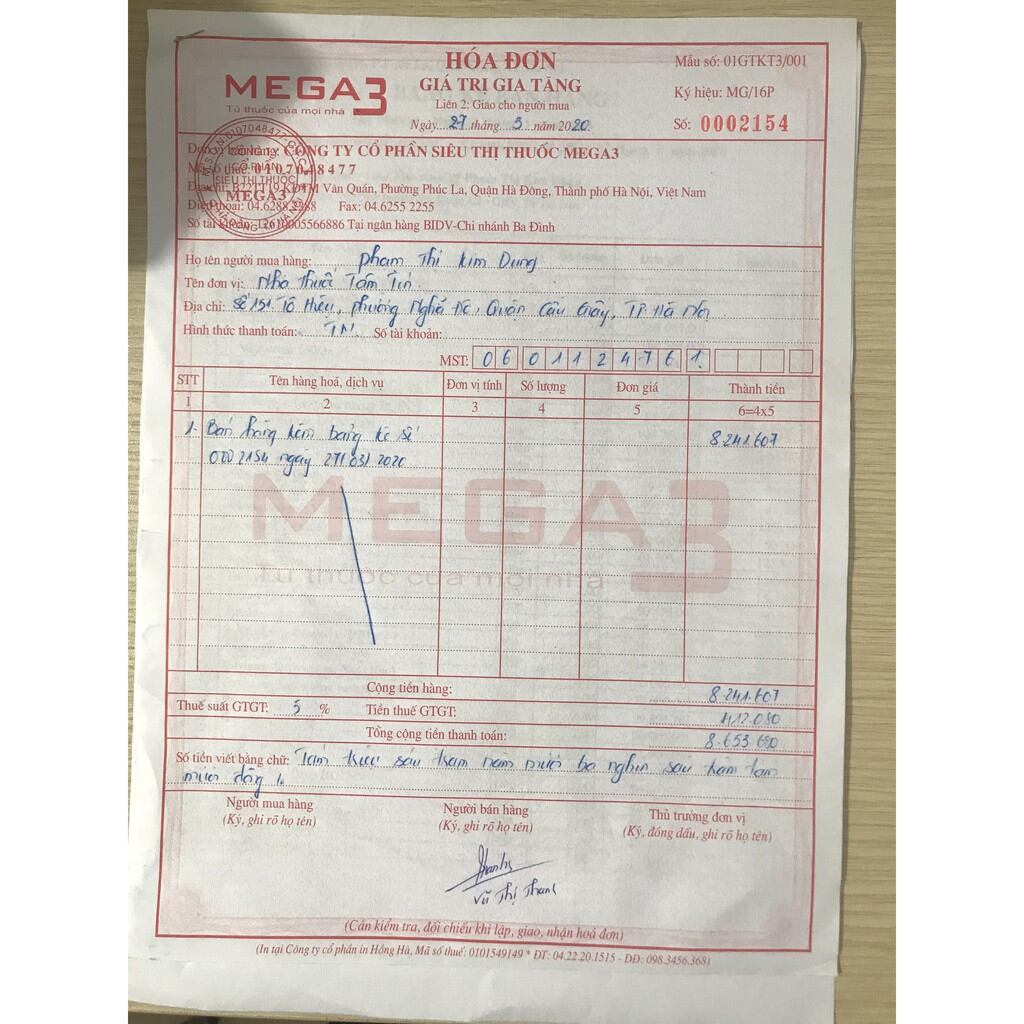 HÓA ĐƠN
GIÁ TRỊ GIA TĂNG
Liên 2: Giao cho người mua
Ngày 27 tháng 3 năm 2020
MEGA3
Tủ thuốc của mọi nhà
Mẫu số: 01GTKT3/001
Ký hiệu: MG/16P
Số: 0002154
Đơn vị bán hàng: CÔNG TY CỔ PHẦN SIÊU THỊ THUỐC MEGA3
Mã số thuế: 0107048477
Địa chỉ: B22TT19 KĐTM Văn Quán, Phường Phúc La, Quận Hà Đông, Thành phố Hà Nội, Việt Nam
Điện thoại: 04.6288 Fax: 04.6255 2255
Số tài khoản: 12610005566886 Tại ngân hàng BIDV-Chi nhánh Ba Đình
CÔNG TY
CỔ PHẦN
SIÊU THỊ THUỐC
MEGA3
Họ tên người mua hàng: Phạm Thị Kim Dung
Tên đơn vị: Nhà thuốc Tâm Tín
Địa chỉ: Số 151 Tô Hiệu, phường Nghĩa Đô, Quận Cầu Giấy, TP Hà Nội
Hình thức thanh toán: TM Số tài khoản:
MST: 0601124761
STT Tên hàng hoá, dịch vụ Đơn vị tính Số lượng Đơn giá Thành tiền
1 2 3 4 5 6=4x5
1. Bán hàng kèm bảng kê số 8.241.607
0002154 ngày 27/03/2020
MEGA3
Tủ thuốc của mọi nhà
Cộng tiền hàng: 8.241.607
Thuế suất GTGT: 5 % Tiền thuế GTGT: 412.080
Tổng cộng tiền thanh toán: 8.653.680
Số tiền viết bằng chữ: Tám triệu sáu trăm năm mươi ba nghìn sáu trăm tám
mươi đồng
Người mua hàng Người bán hàng Thủ trưởng đơn vị
(Ký, ghi rõ họ tên) (Ký, ghi rõ họ tên) (Ký, đóng dấu, ghi rõ họ tên)
Vũ Thị Thanh
(Cần kiểm tra, đối chiếu khi lập, giao, nhận hoá đơn)
(In tại Công ty cổ phần in Hồng Hà, Mã số thuế: 0101549149 * ĐT: 04.22.20.1515 - DĐ: 098.3456.368)